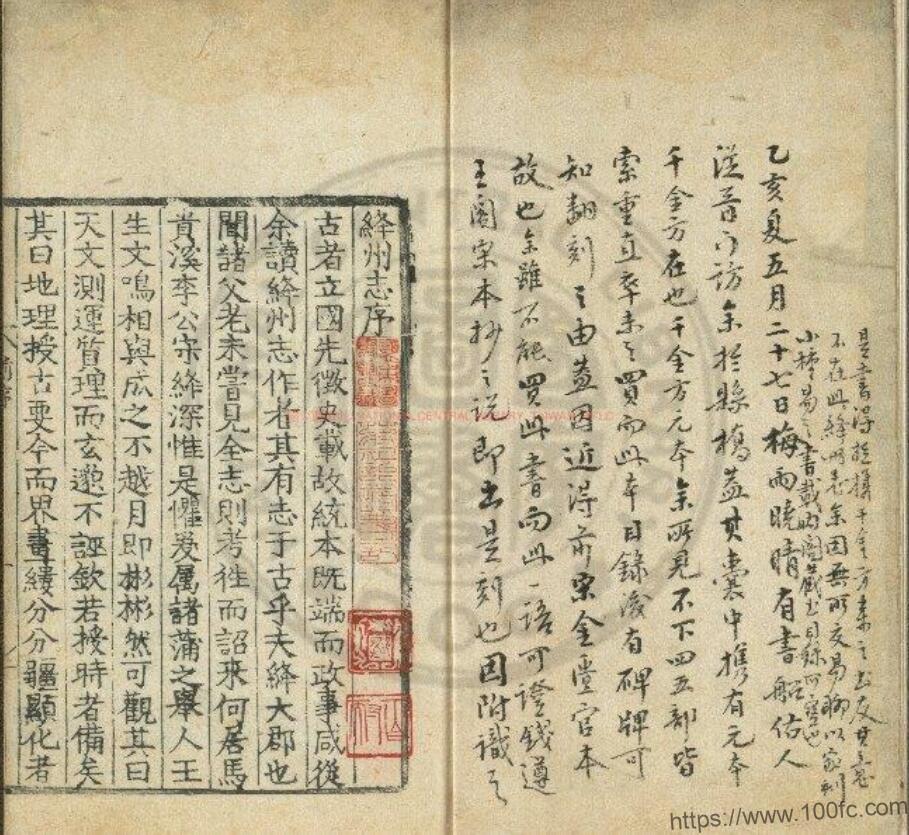 是書得於携千金方来之书友其意
不在此絳州志余因無所交易聊以家刻
小種易之書載内閣藏书目録可寶也
乙亥夏五月二十七日梅雨曉晴有書船估人
從晉門訪余於縣橋蓋其囊中携有元本
千金方在也千金方元本余所見不下四五部皆
索重直卒未之買而此本目録後有碑牌可
知翻刻之由蓋因近得前宋金堂官本
故也余雖不能買此書而此一語可證錢遵
王閣宋本抄之説即出是刻也因附識之
絳州志序
古者立國先徵史載故統本既端而政事咸從
余讀絳州志作者其有志于古乎夫絳大郡也
聞諸父老未嘗見全志則考徃而詔來何居馬
貢溪李公守絳深惟是懼爰属諸蒲之舉人王
生文鳴相與瓜之不越月即彬彬然可觀其曰
天文測運質理而玄邈不誣欽若授時者備矣
其曰地理授古要今而界畫縷分分疆顯化者
https://www.100fc.com